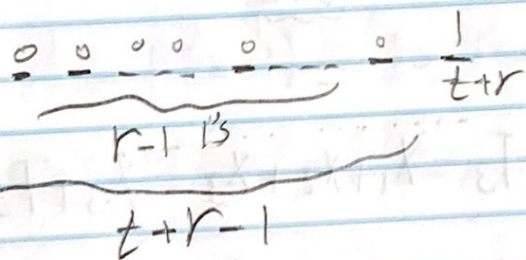 0 0 0 0 0 0 1
t+r
r-1 1's
t+r-1